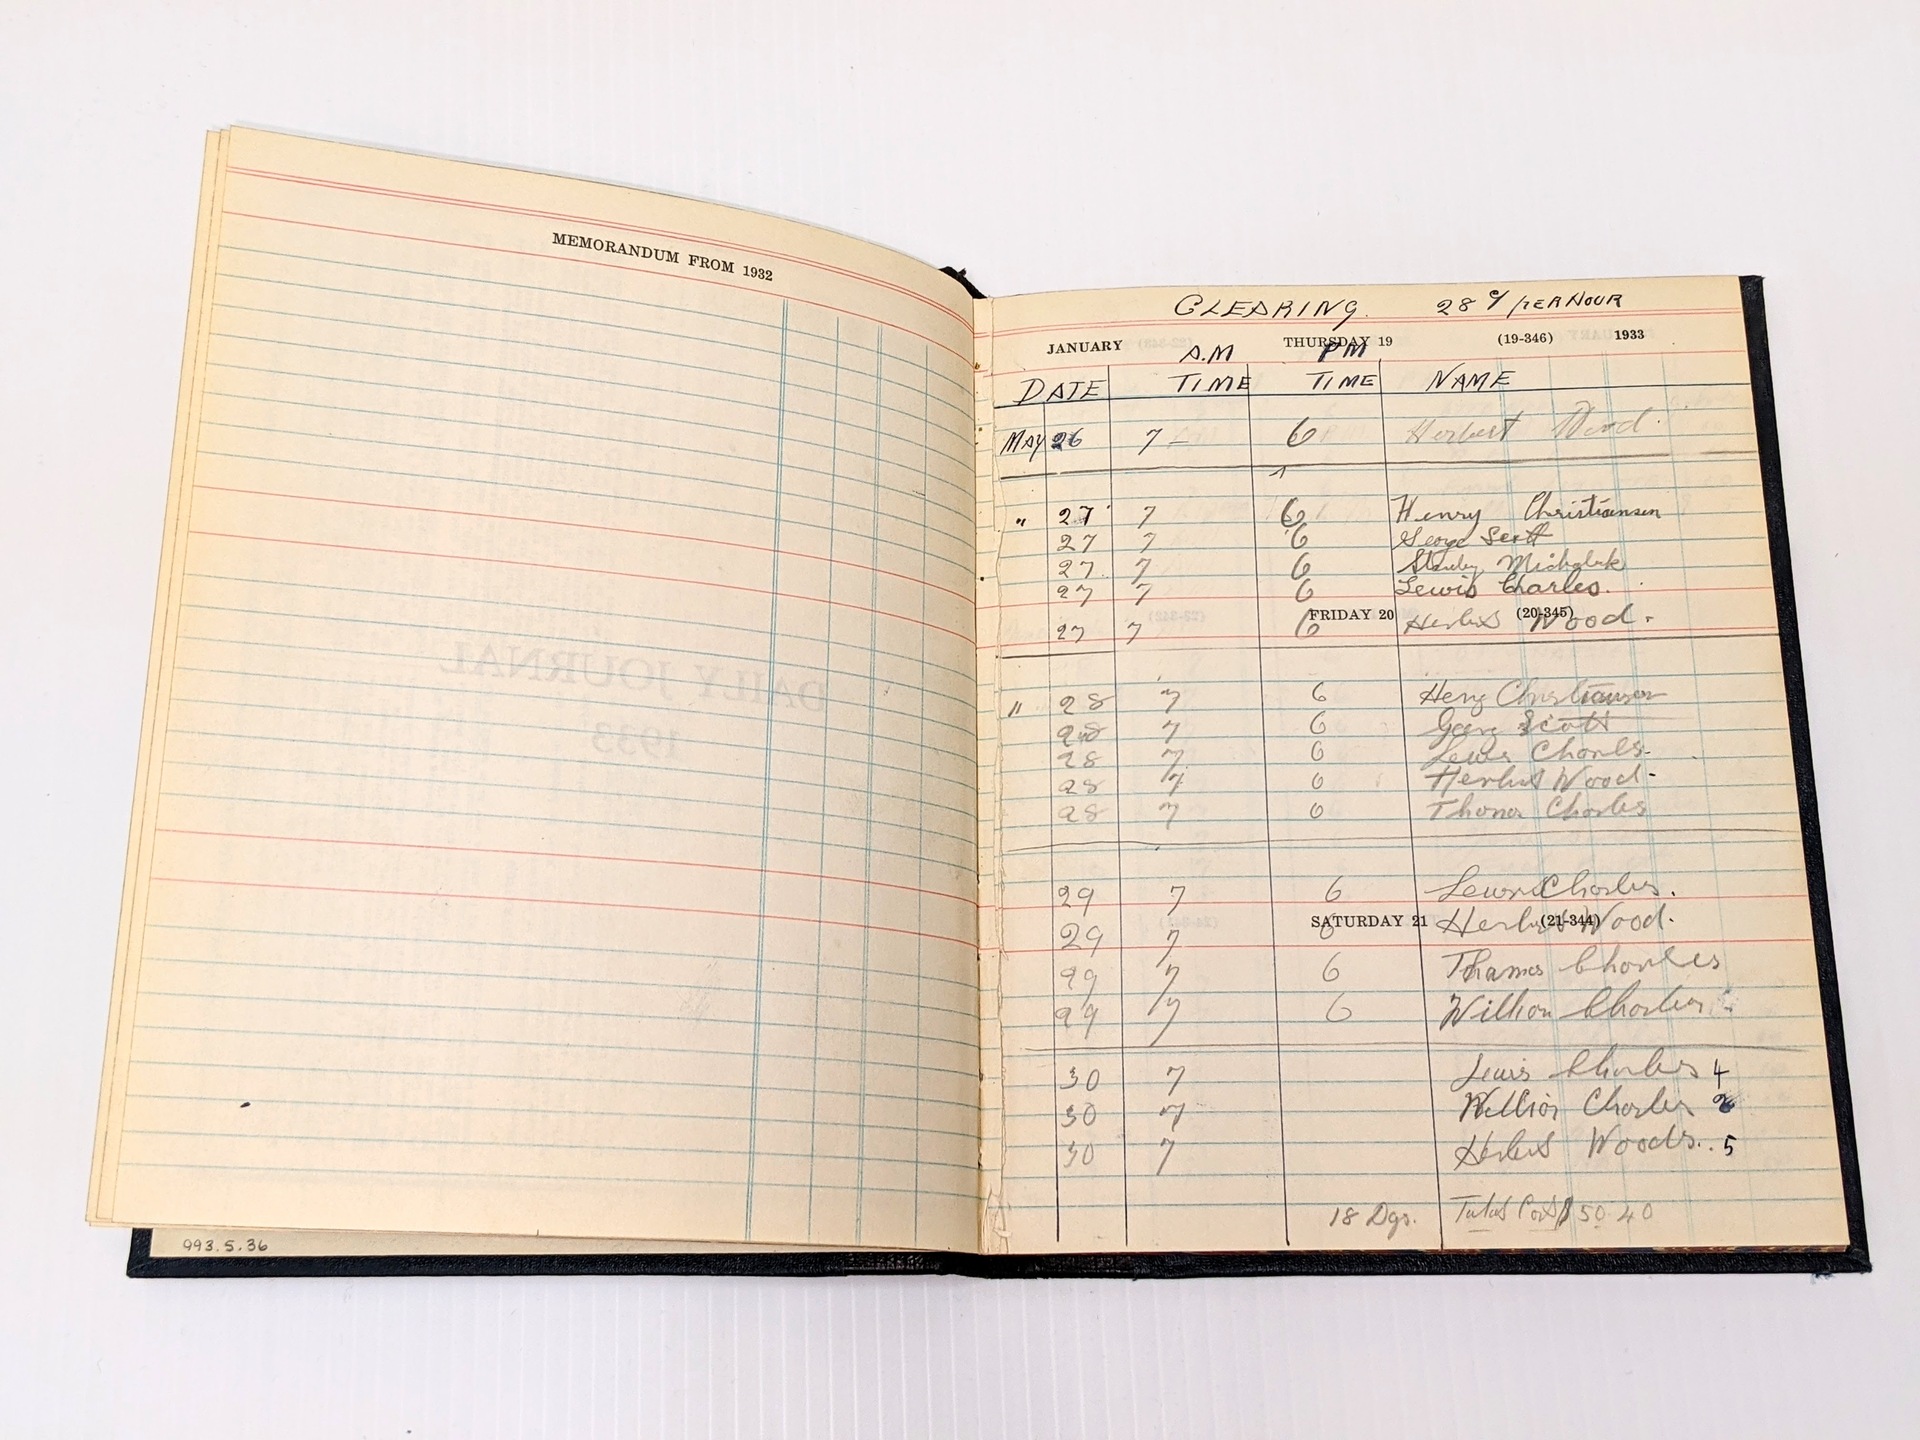 MEMORANDUM FROM 1932
DAILY JOURNAL
1933
993.5.36
CLEARING. 28 ¢/PER HOUR
JANUARY THURSDAY 19 (19-346) 1933
A.M PM
DATE TIME TIME NAME
MAY 26 7 6 Herbert Wood.
" 27 7 6 Henry Christiansen
27 7 6 George Scott
27 7 6 Stanley Michaluk
27 7 6 Lewis Charles.
FRIDAY 20 (20-345)
27 7 6 Herbert Wood.
" 28 7 6 Henry Christiansen
28 7 6 Georg Scott
28 7 6 Lewis Charles.
28 7 6 Herbert Wood.
28 7 6 Thomas Charles
29 7 6 Lewis Charles.
SATURDAY 21 (21-344)
29 7 6 Herbert Wood.
29 7 6 Thomas Charles
29 7 6 William Charles
30 7 Lewis Charles 4
30 7 William Charles
30 7 Herbert Woods.. 5
18 Dys. Total Cost $50.40